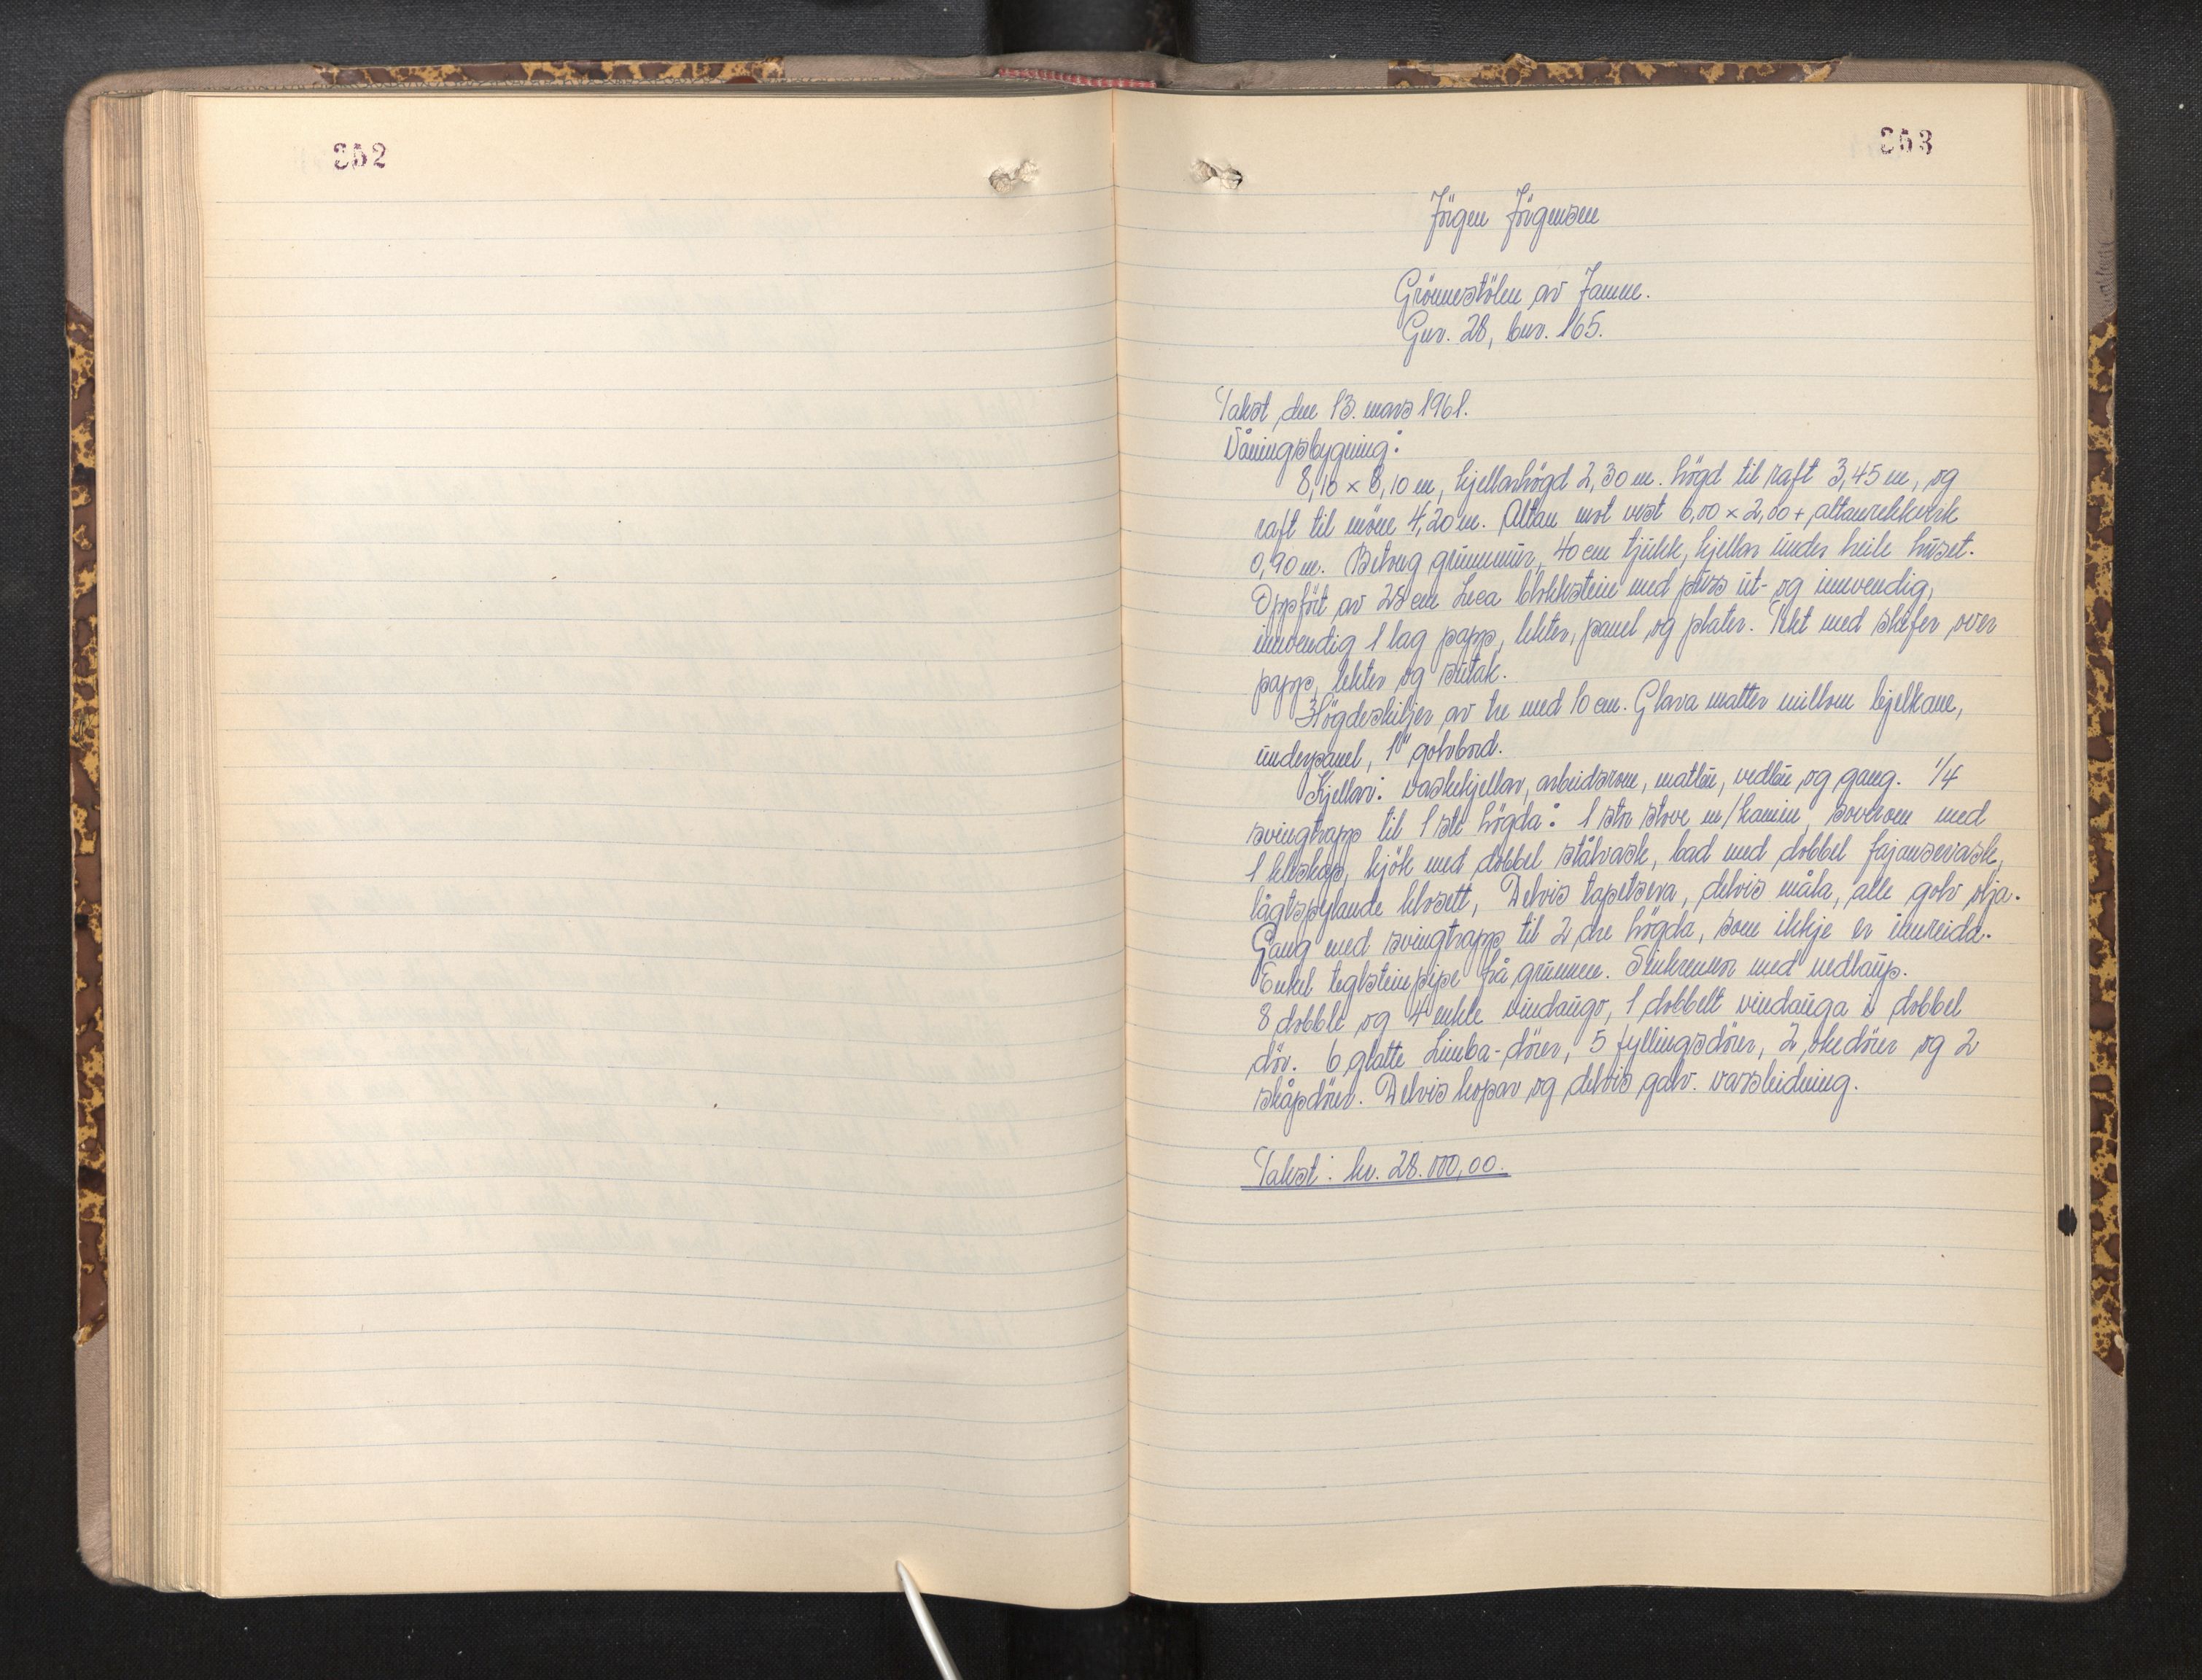 352
353
Jörgen Jörgensen
Grönnestölen av Famme.
Gnr. 28, bnr. 165.
Takst den 13. mars 1961.
Våningsbygning:
8,10 × 8,10 m, kjellarhögd 2,30 m. högd til raft 3,45 m, og
raft til möne 4,20 m. Altan mot vest 6,00 × 2,00 + altanrekkverk
0,90 m. Betong grunnmur, 40 cm tjukk, kjellar under heile huset.
Oppfört av 25 cm Leca blokkstein med puss ut- og innvendig,
innvendig 1 lag papp, lekter, panel og plater. Tekt med skifer over
papp, lekter og sutak.
Högdeskiljer av tre med 10 cm. Glava matter millom bjelkane,
underpanel, 1" golvbord.
Kjellar: vaskekjellar, arbeidsrom, matbu, vedbu og gang. 1/4
svingtrapp til 1ste högda: 1 stor stove m/kamin, soverom med
1 kleskap, kjök med dobbel stålvask, bad med dobbel fajansevask,
lågtspylande klosett, Delvis tapetsera, delvis måla, alle golv olja.
Gang med svingtrapp til 2 dre högda, som ikkje er innreida.
Enkel teglsteinpipe frå grunnen. Sinkrennor med nedlaup.
8 doble og 4 enkle vindaugo, 1 dobbelt vindauga i dobbel
dör. 6 glatte Limba-dörer, 5 fyllingsdörer, 2 okedörer og 2
skåpdörer. Delvis kopar og delvis galv. vassleidning.
Takst: kr. 28.000,00.